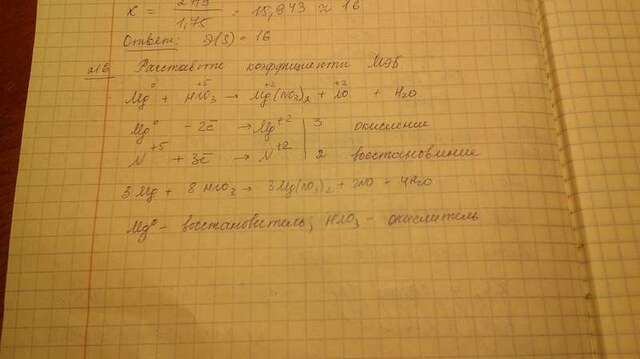 x = 279 / 1,75 = 15,943 ≈ 16
Ответ: Э(S) = 16
216 Расставьте коэффициенты МЭБ
Mg⁰ + HN⁺⁵O3 → Mg⁺²(NO3)2 + N⁺²O + H2O
Mg⁰ - 2ē → Mg⁺² | 3 окисление
N⁺⁵ + 3ē → N⁺² | 2 восстановление
3Mg + 8HNO3 → 3Mg(NO3)2 + 2NO - 4H2O
Mg⁰ - восстановитель; HNO3 - окислитель